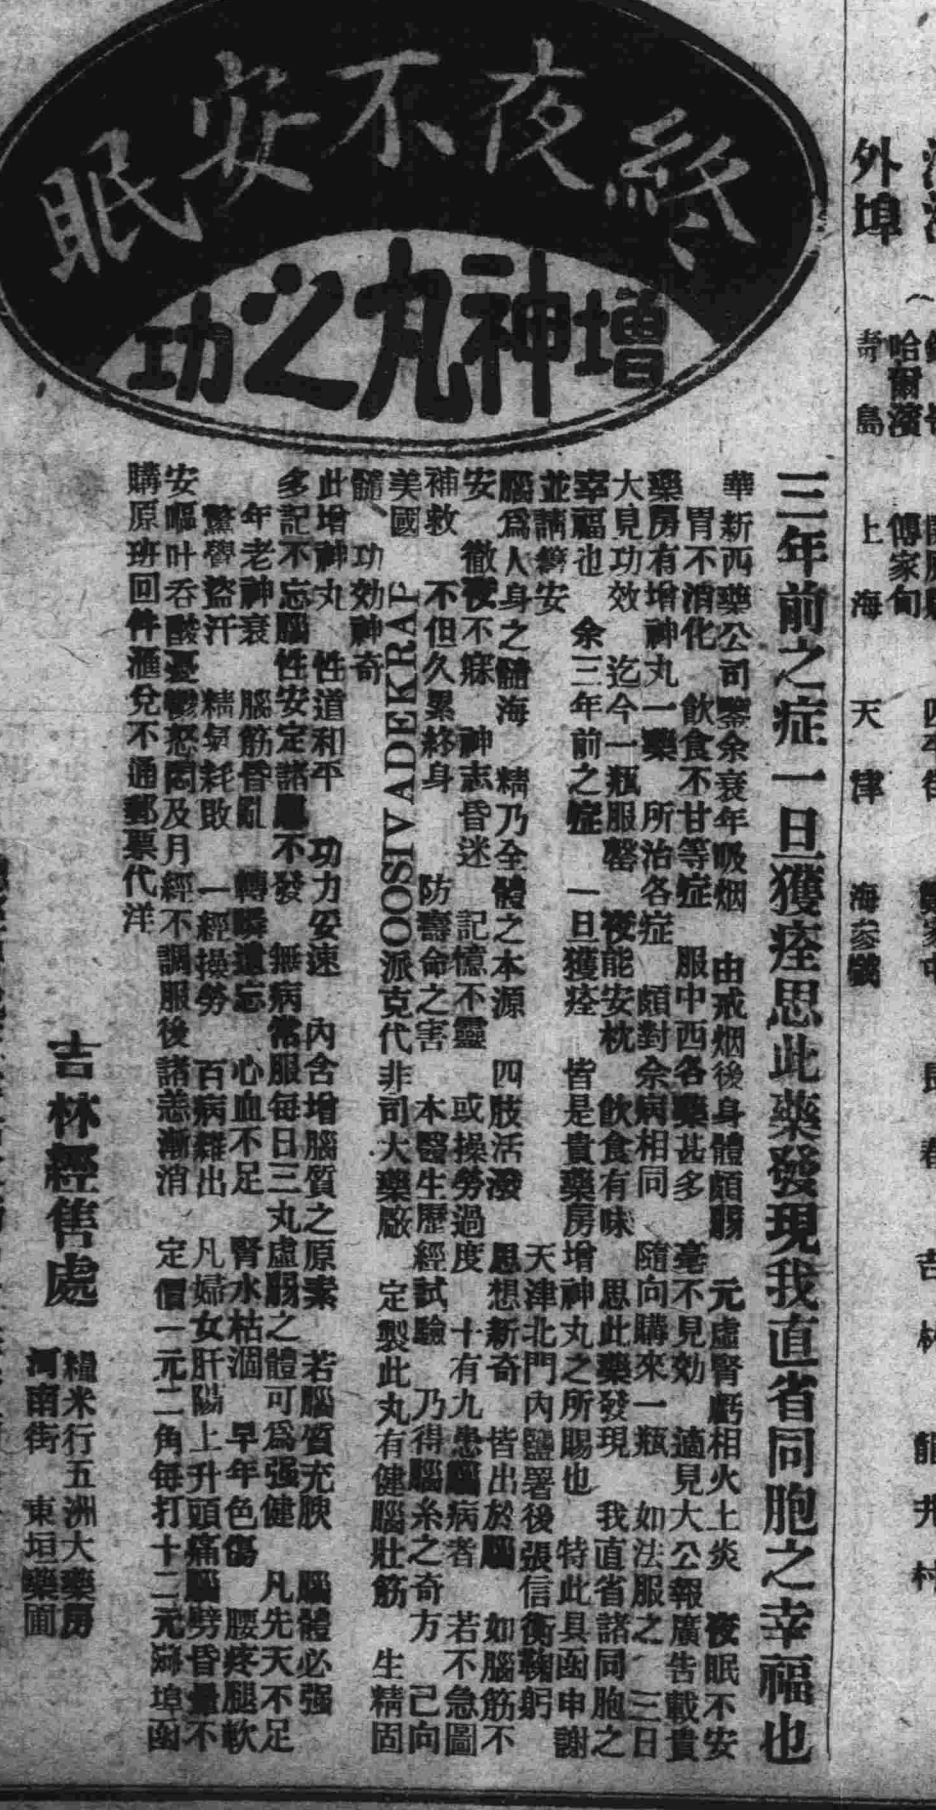 終夜不安眠
增神丸之功
三年前之症一旦獲痊思此藥發現我直省同胞之幸福也
華新西藥公司鑒余衰年吸烟 由戒烟後身體頗弱 元虛腎虧相火上炎 夜眠不安
胃不消化 飲食不甘等症 服中西各藥甚多 毫不見効 適見大公報廣告載貴
藥房有增神丸一藥 所治各症 頗對余病相同 隨向購來一瓶 如法服之 三日
大見功效 迄今一瓶服罄 夜能安枕 飲食有味 思此藥發現 我直省諸同胞之
幸福也 余三年前之症 一旦獲痊 皆是貴藥房增神丸之所賜也 特此具函申謝
並請籌安 天津北門內鹽署後張信衡鞠躬
腦爲人身之髓海 精乃全體之本源 四肢活潑 思想新奇 皆出於腦 如腦筋不
安 徹夜不寐 神志昏迷 記憶不靈 或操勞過度 十有九患腦病者 若不急圖
補救 不但久累終身 防壽命之害 本醫生歷經試驗 乃得腦糸之奇方 己向
美國 OOSIVADEKRAP 派克代非司大藥廠 定製此丸有健腦壯筋 生精固
髓、功効神奇
此增神丸 性道和平 功力安速 內含增腦質之原素 若腦質充腴 腦體必强
多記不忘腦性安定諸患不發 無病常服每日三丸虛弱之體可爲强健 凡先天不足
年老神衰 腦筋昏亂 轉瞬遺忘 心血不足 腎水枯涸 早年色傷 腰疼腿軟
驚覺盜汗 精氣耗敗 一經操勞 百病雜出 凡婦女肝陽上升頭痛腦劈昏暈不
安嘔吐吞酸憂鬱怒悶及月經不調服後諸恙漸消 定價一元二角每打十二元 埠函
購原班回件滙兌不通郵票代洋
吉林經售處
糧米行五洲大藥房
河南街 東垣藥圃
外埠
哈爾濱 傅家甸
靑島 上海 天津 海參